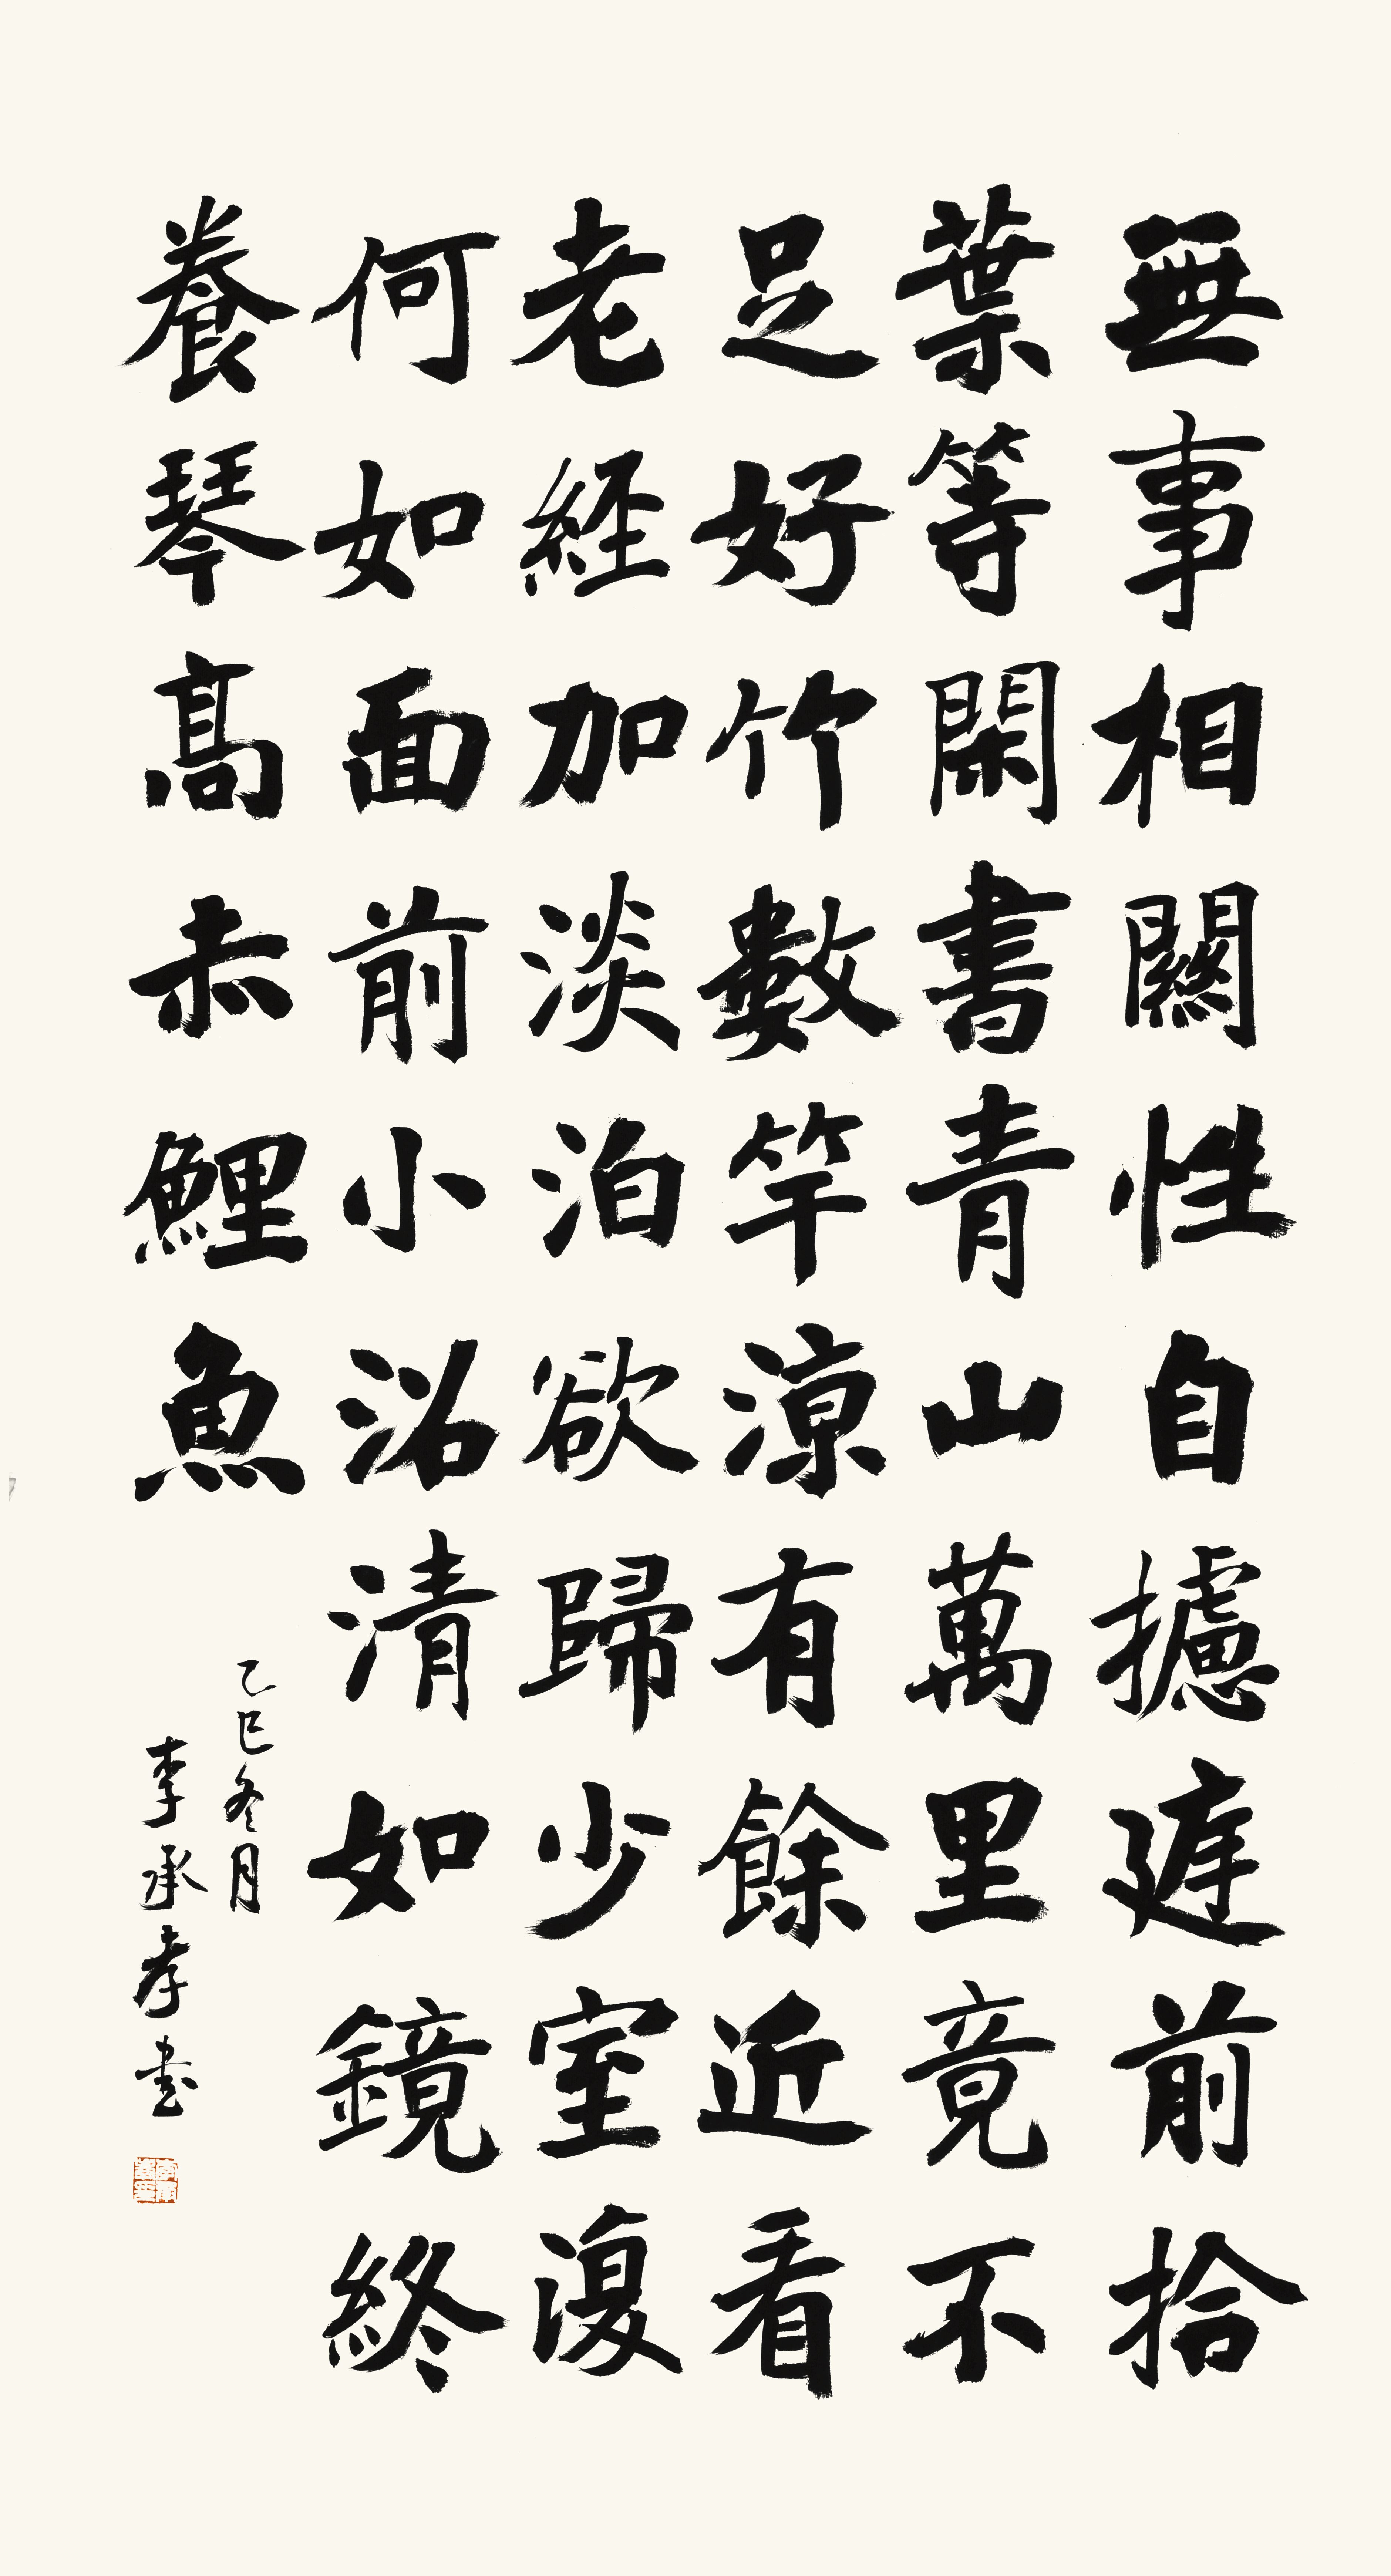 無事相關性自攄庭前拾
葉等閑書青山萬里竟不
足好竹數竿涼有餘近看
老經加淡泊欲歸少室復
何如面前小沼清如鏡終
養琴高赤鯉魚
乙巳冬月
李承孝書